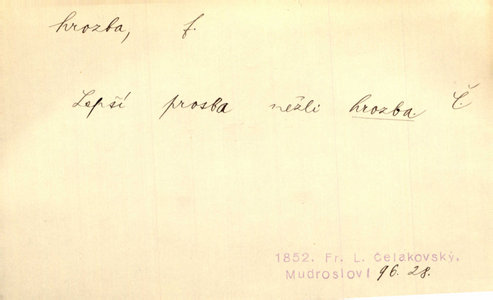 hrozba, f.
Lepší prosba nežli hrozba Č.
1852. Fr. L. Čelakovský.
Mudrosloví 96. 28.